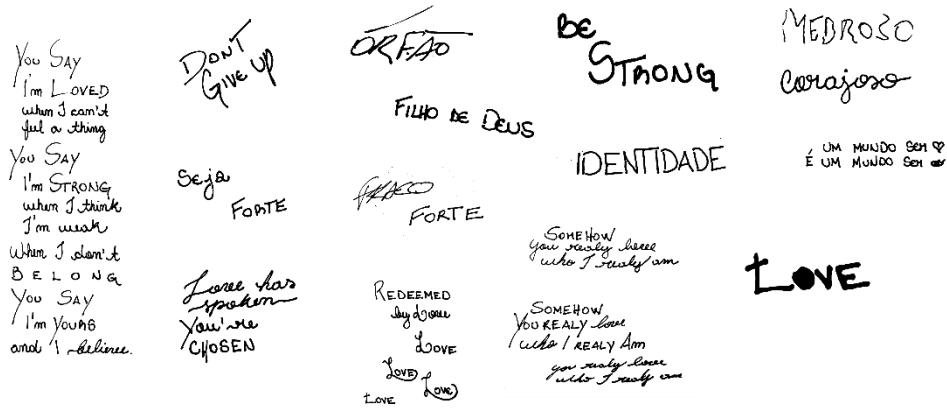 You Say
I'm LOVED
when I can't
ful a thing
You Say
I'm STRONG
when I think
I'm weak
When I don't
BELONG
You Say
I'm YOURS
and I believe.
DON'T
GIVE UP
Seja
FORTE
Love has
spoken
You're
CHOSEN
ÓRFÃO
FILHO DE DEUS
FRACO
FORTE
REDEEMED
by Love
LOVE
LOVE
LOVE
LOVE
BE
STRONG
IDENTIDADE
SOMEHOW
you realy love
who I realy am
SOMEHOW
YOU REALY love
who I REALY Am
you realy love
who I realy am
MEDROSO
Corajoso
UM MUNDO SEM
É UM MUNDO SEM
LOVE